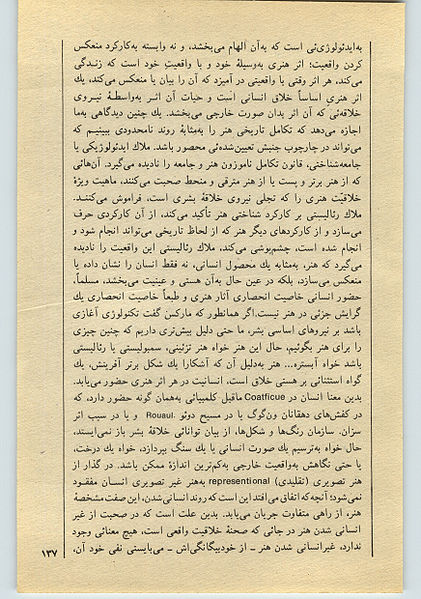 به‌ایدئولوژی‌ئی است که به‌آن الهام می‌بخشد، و نه وابسته به‌کارکرد منعکس
کردن واقعیت؛ اثر هنری به‌وسیلهٔ خود و با واقعیتِ خود است که زندگی
می‌کند، هر اثر وقتی با واقعیتی در آمیزد که آن را بیان یا منعکس می‌کند، یك
اثر هنریِ اساساً خلاق انسانی است و حیات آن اثر به‌واسطهٔ نیروی
خلاقه‌ئی که آن اثر بدان صورت خارجی می‌بخشد. یك چنین دیدگاهی به‌ما
اجازه می‌دهد که تکامل تاریخی هنر را به‌مثابهٔ روند نامحدودی ببینیم که
می‌تواند در چارچوب جنبش تعیین‌شده‌ئی محصور باشد. ملاك ایدئولوژیکی یا
جامعه‌شناختی، قانون تکامل ناموزون هنر و جامعه را نادیده می‌گیرد. آن‌هائی
که از هنر برتر و پست یا از هنر مترقی و منحط صحبت می‌کنند، ماهیت ویژهٔ
خلاقیّت هنری را که تجلی نیروی خلاقهٔ بشری است، فراموش می‌کنند.
ملاك رئالیستی بر کارکرد شناختی هنر تأکید می‌کند، از آن کارکردی حرف
می‌سازد و از کارکردهای دیگر هنر که از لحاظ تاریخی می‌تواند انجام شود و
انجام شده است، چشم‌پوشی می‌کند، ملاك رئالیستی این واقعیت را نادیده
می‌گیرد که هنر، به‌مثابه یك محصول انسانی، نه فقط انسان را نشان داده یا
منعکس می‌سازد، بلکه در عین حال به‌آن هستی و عینیت می‌بخشد، مسلماً،
حضور انسانی خاصیت انحصاری آثار هنری و طبعاً خاصیت انحصاری یك
گرایش جزئی در هنر نیست. اگر همانطور که مارکس گفت تکنولوژی آغازی
باشد بر نیروهای اساسی بشر، ما حتی دلیل بیش‌تری داریم که چنین چیزی
را برای هنر بگوئیم، حال این هنر خواه هنر تزئینی، سمبولیستی یا رئالیستی
باشد خواه آبستره... هنر به‌دلیل آن که آشکارا یك شکل برتر آفرینش، یك
گواه استثنائی بر هستی خلاق است، انسانیت در هر اثر هنری حضور می‌یابد.
بدین معنا انسان در Coatficue ماقبل کلمبیائی به‌همان گونه حضور دارد، که
در کفش‌های دهقانان ون‌گوگ یا در مسیح دوئو Rouaul. و یا در سیب اثر
سزان. سازمان رنگ‌ها و شکل‌ها، از بیان توانائی خلاقهٔ بشر باز نمی‌ایستند،
حال خواه به‌ترسیم یك صورت انسانی یا یك سنگ بپردازد، خواه یك درخت،
یا حتی نگاهش به‌واقعیت خارجی به‌کم‌ترین اندازهٔ ممکن باشد. در گذار از
هنر تصویری (تقلیدی) representional به‌هنر غیر تصویری انسان مفقود
نمی‌شود؛ آنچه که اتفاق می‌افتد این است که روند انسانی شدن، این صفت مشخصهٔ
هنر، از راهی متفاوت جریان می‌یابد. بدین علت است که در صحبت از غیر
انسانی شدن هنر در جائی که صحنهٔ خلاقیت واقعی است، هیچ معنائی وجود
ندارد، غیرانسانی شدن هنر ــ از خودبیگانگی‌اش ــ می‌بایستی نفی خود آن،
۱۳۷